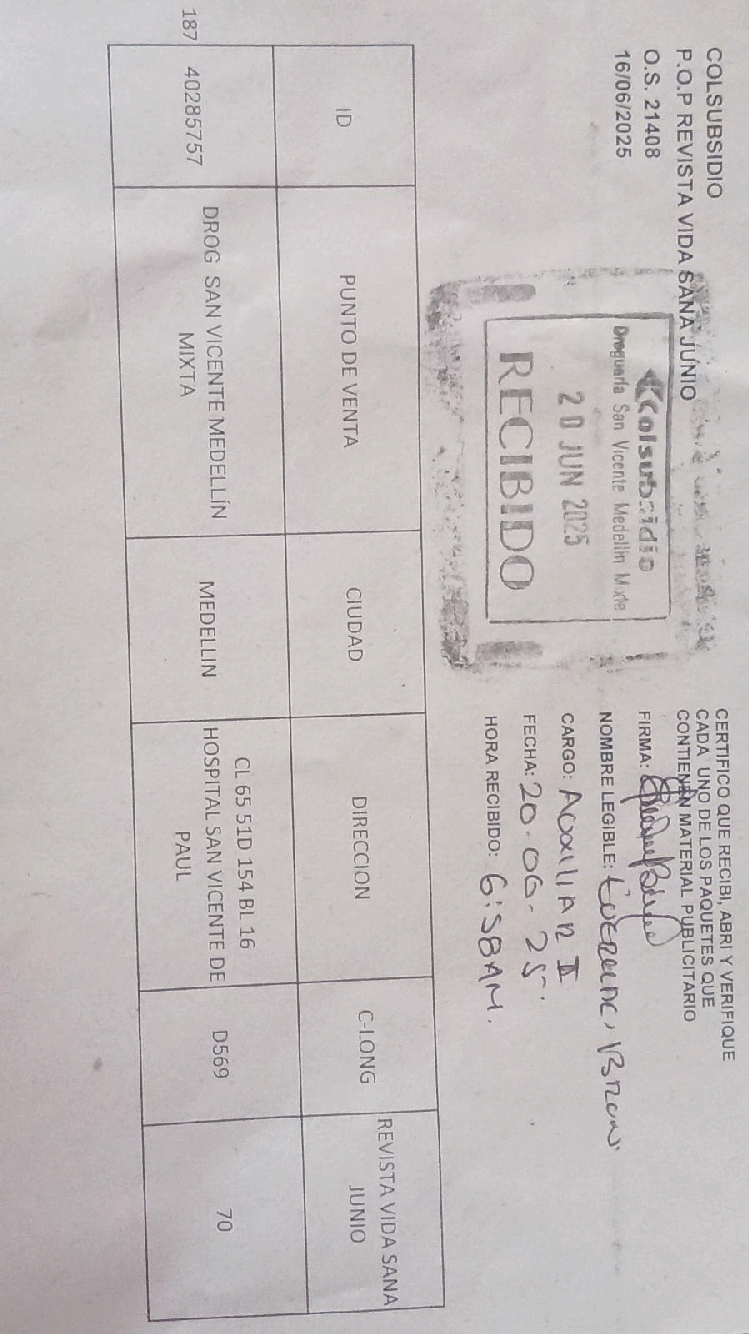 COLSUBSIDIO
P.O.P REVISTA VIDA SANA JUNIO
O.S. 21408
16/06/2025
Colsubsidio
Droguería San Vicente Medellín Mixta
20 JUN 2025
RECIBIDO
CERTIFICO QUE RECIBI, ABRI Y VERIFIQUE
CADA UNO DE LOS PAQUETES QUE
CONTIENEN MATERIAL PUBLICITARIO
FIRMA:
NOMBRE LEGIBLE:
CARGO: AUXILIAR II
FECHA: 20-06-25.
HORA RECIBIDO: 6:58AM.
ID
PUNTO DE VENTA
CIUDAD
DIRECCION
C-LONG
REVISTA VIDA SANA
JUNIO
187
40285757
DROG SAN VICENTE MEDELLÍN
MIXTA
MEDELLIN
CL 65 51D 154 BL 16
HOSPITAL SAN VICENTE DE
PAUL
D569
70